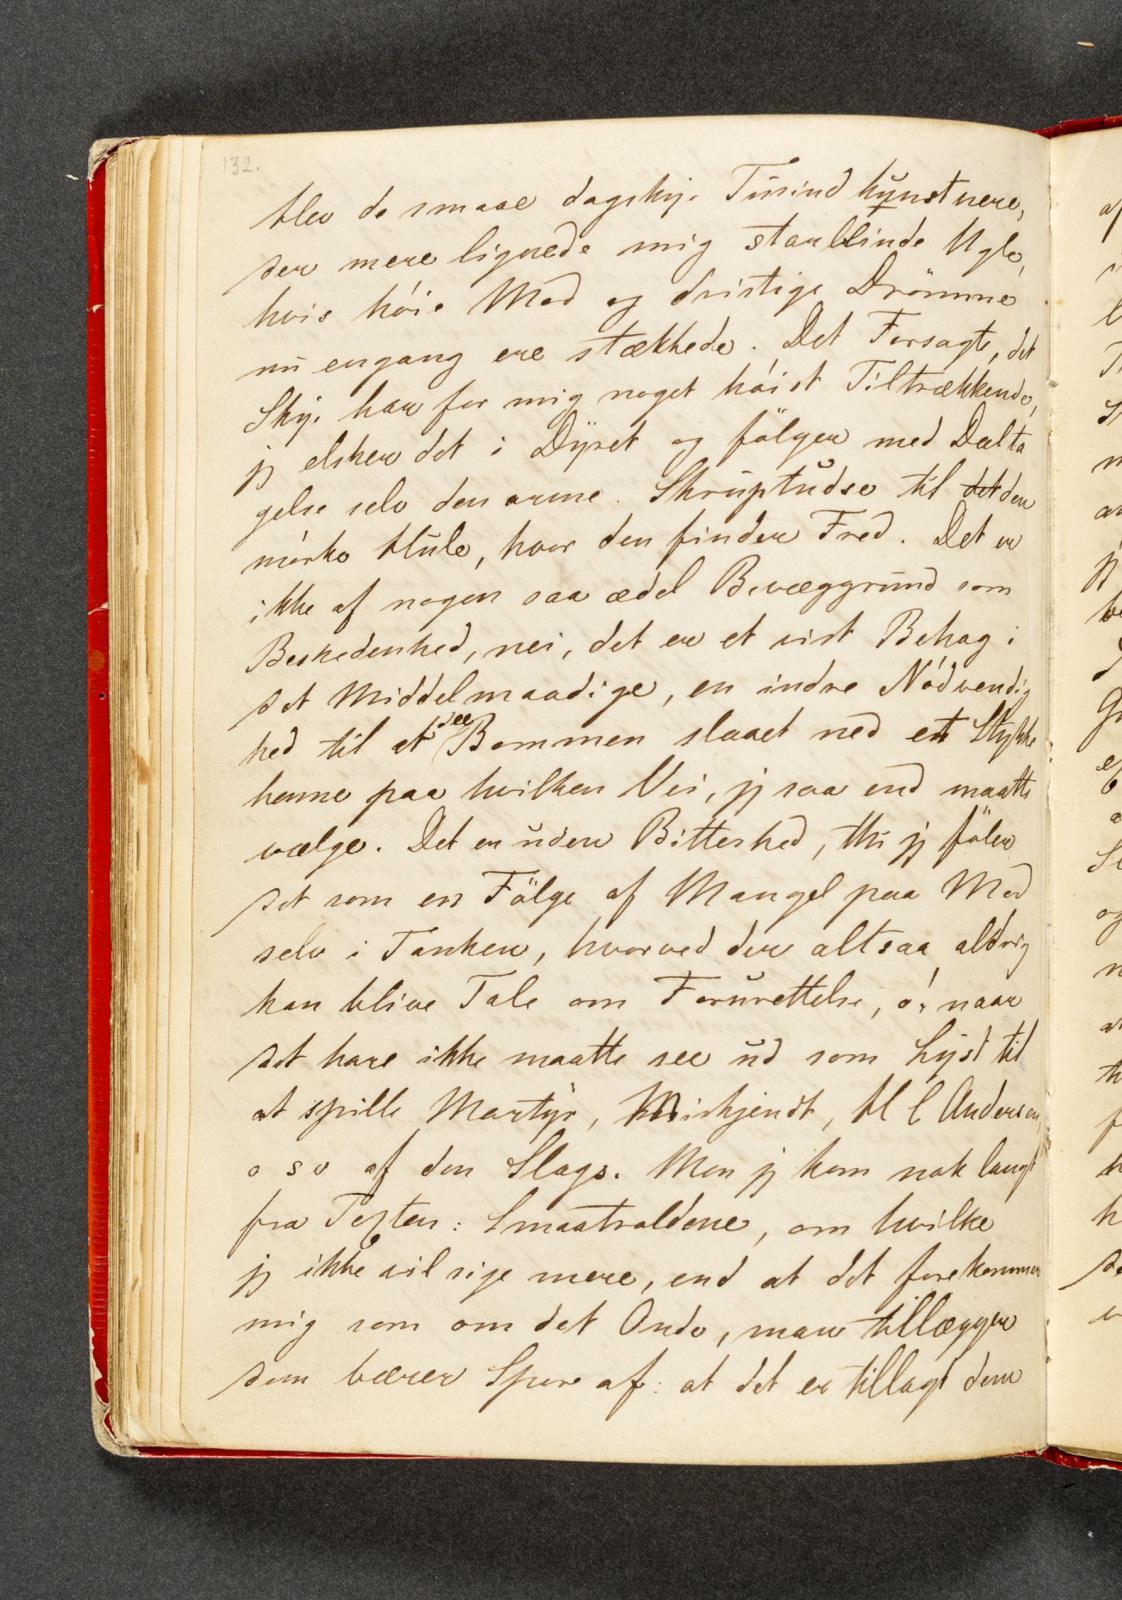 132.
blev de smaae dagskye Tusind kunstnere,
der mere lignede mig starblinde Ugle,
hvis höie Mod og dristige Drömme
nu engang ere stækkede. Det Forsagte, det
Skye har for mig noget höist Tiltrækkende,
jeg elsker det i Dyret og fölger med Delta
gelse selv den arme Skruptudse til det den
mörke Hule, hvor den finder Fred. Det er
ikke af nogen saa ædel Bevæggrund som
Beskedenhed, nei, det er et vist Behag i
det Middelmaadige, en indre Nödvendig
hed til at see Bommen slaaet ned et Stykke
henne paa hvilken Vei, jeg saa end maatte
vælge. Det er uden Bitterhed, thi jeg föler
det som en Fölge af Mangel paa Mod
selv i Tanken, hvorved der altsaa aldrig
kan blive Tale om Forurettelse, o! naar
det bare ikke maatte see ud som Lyst til
at spille Martyr, Miskjendt, H C Andersen,
o s v af den Slags. Men jeg kom nok langt
fra Texten: Smaatroldene, om hvilke
jeg ikke vil sige mere, end at det forekommer
mig som om det Onde, man tillægger
dem bærer Spor af: at det er tillagt dem